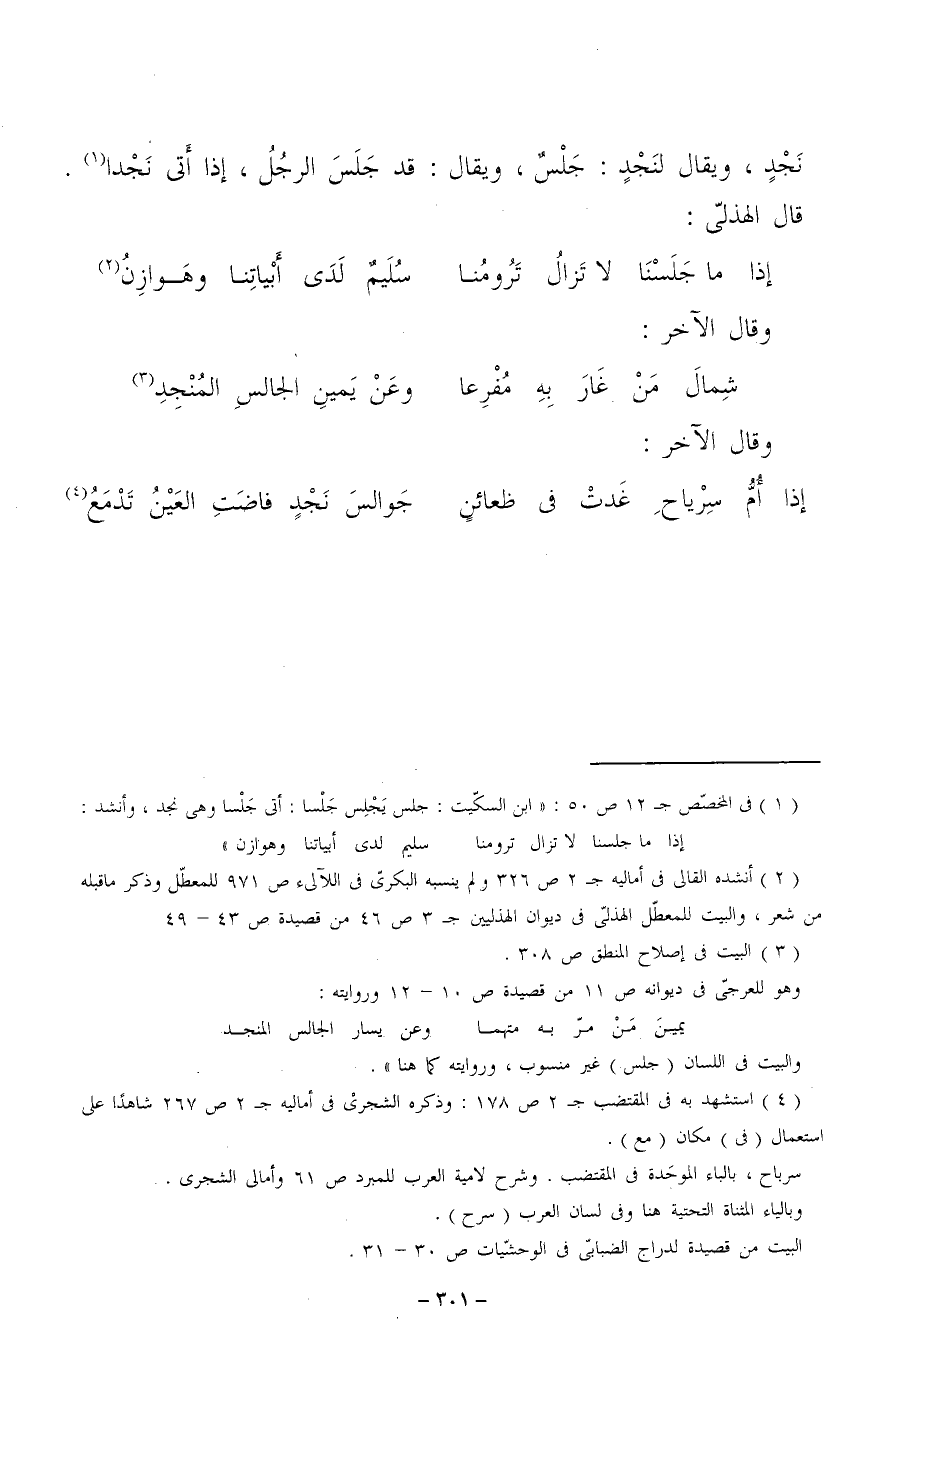 نَجْدٍ ، ويقال لنَجْدٍ : جَلْسٌ ، ويقال : قد جَلَسَ الرجُلُ ، إذا أَتى نَجْدا(١) .
قال الهذلىّ :
إذا ما جَلَسْنَا لا تَزالُ تَرُومُنـا سُلَيمٌ لَدَى أَبْياتِنـا وهَـوازِنُ(٢)
وقال الآخر :
شِمالَ مَنْ غَارَ بِهِ مُفْرِعا وعَنْ يَمينِ الجالسِ المُنْجِدِ(٣)
وقال الآخر :
إذا أُمُّ سِرْياحٍ غَدتْ فى ظعائنٍ جَوالسَ نَجْدٍ فاضَتِ العَيْنُ تَدْمَعُ(٤)
( ١ ) فى المخصّص جـ ١٢ ص ٥٠ : « ابن السكّيت : جلس يَجْلِس جَلْسا : أتى جَلْسا وهى نجد ، وأنشد :
إذا ما جلسنا لا تزال ترومنا سليم لدى أبياتنا وهوازن »
( ٢ ) أنشده القالى فى أماليه جـ ٢ ص ٣٢٦ ولم ينسبه البكرىّ فى اللآلىء ص ٩٧١ للمعطّل وذكر ماقبله
من شعر ، والبيت للمعطّل الهذلىّ فى ديوان الهذليين جـ ٣ ص ٤٦ من قصيدة ص ٤٣ – ٤٩
( ٣ ) البيت فى إصلاح المنطق ص ٣٠٨ .
وهو للعرجىّ فى ديوانه ص ١١ من قصيدة ص ١٠ – ١٢ وروايته :
يمينَ مَنْ مـرّ بـه متهمـا وعن يسار الجالس المنجـد
والبيت فى اللسان ( جلس ) غير منسوب ، وروايته كما هنا » .
( ٤ ) استشهد به فى المقتضب جـ ٢ ص ١٧٨ : وذكره الشجرىْ فى أماليه جـ ٢ ص ٢٦٧ شاهدًا على
استعمال ( فى ) مكان ( مع ) .
سرباح ، بالباء الموحَدة فى المقتضب . وشرح لامية العرب للمبرد ص ٦١ وأمالى الشجرى .
وبالياء المثناة التحتية هنا وفى لسان العرب ( سرح ) .
البيت من قصيدة لدراج الضبابىّ فى الوحشيّات ص ٣٠ – ٣١ .
– ٣٠١ –